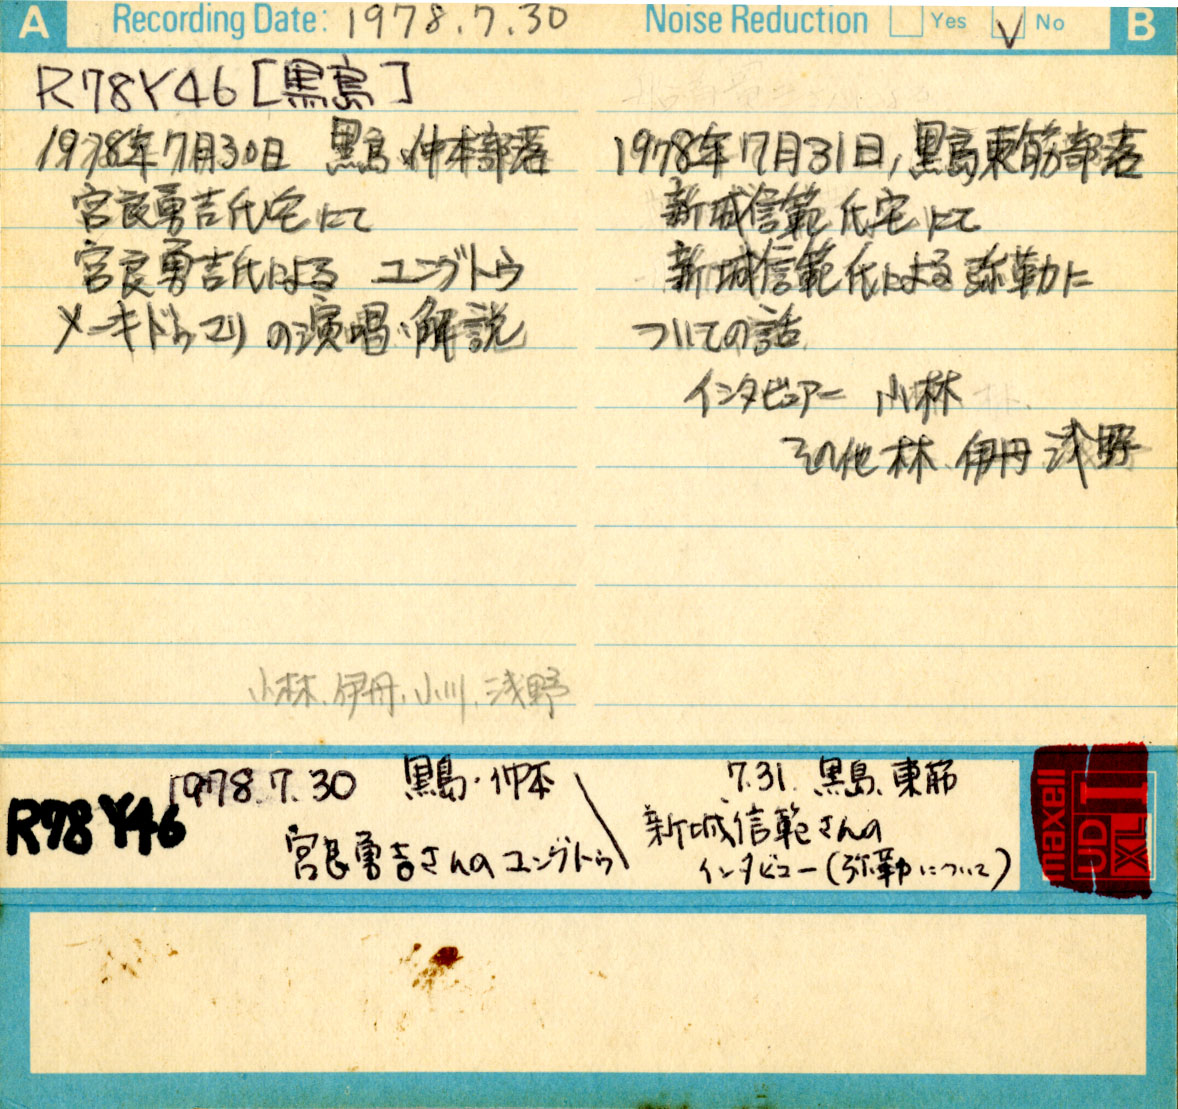 A Recording Date: 1978.7.30 Noise Reduction Yes No B
R78Y46 [黒島]
1978年7月30日 黒島・仲本部落
宮良勇吉氏宅にて
宮良勇吉氏による ユングトゥ
メーキドゥマリの演唱・解説
小林、伊丹、小川、浅野
1978年7月31日,黒島東筋部落
新城信範氏宅にて
新城信範氏による弥勒に
ついての話
インタビュアー 小林
その他 林、伊丹 浅野
R78 Y46
1978.7.30 黒島・仲本
宮良勇吉さんのユングトゥ
7.31. 黒島、東筋
新城信範さんの
インタビュー(弥勒について)
maxell
UD
XL I